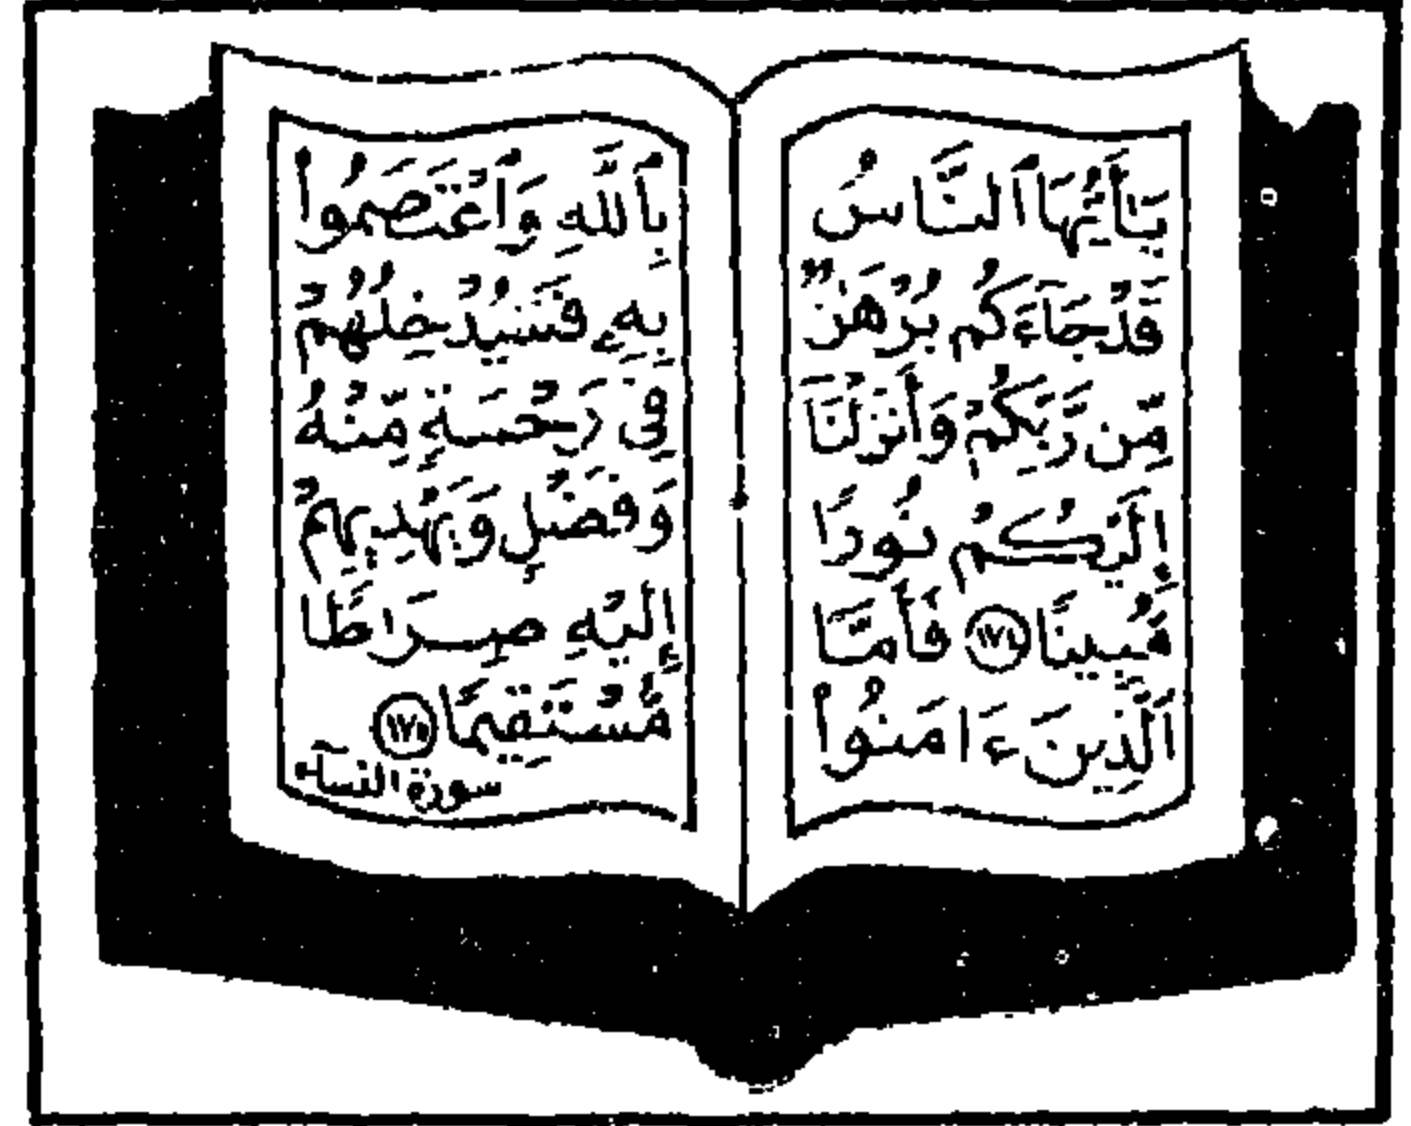 يَـٰٓأَيُّهَا ٱلنَّاسُ
قَدْ جَآءَكُم بُرْهَـٰنٌ
مِّن رَّبِّكُمْ وَأَنزَلْنَآ
إِلَيْكُمْ نُورًا
مُّبِينًا ١٧٤ فَأَمَّا
ٱلَّذِينَ ءَامَنُوا۟
بِٱللَّهِ وَٱعْتَصَمُوا۟
بِهِۦ فَسَيُدْخِلُهُمْ
فِى رَحْمَةٍ مِّنْهُ
وَفَضْلٍ وَيَهْدِيهِمْ
إِلَيْهِ صِرَاطًا
مُّسْتَقِيمًا ١٧٥
سورة النسآء